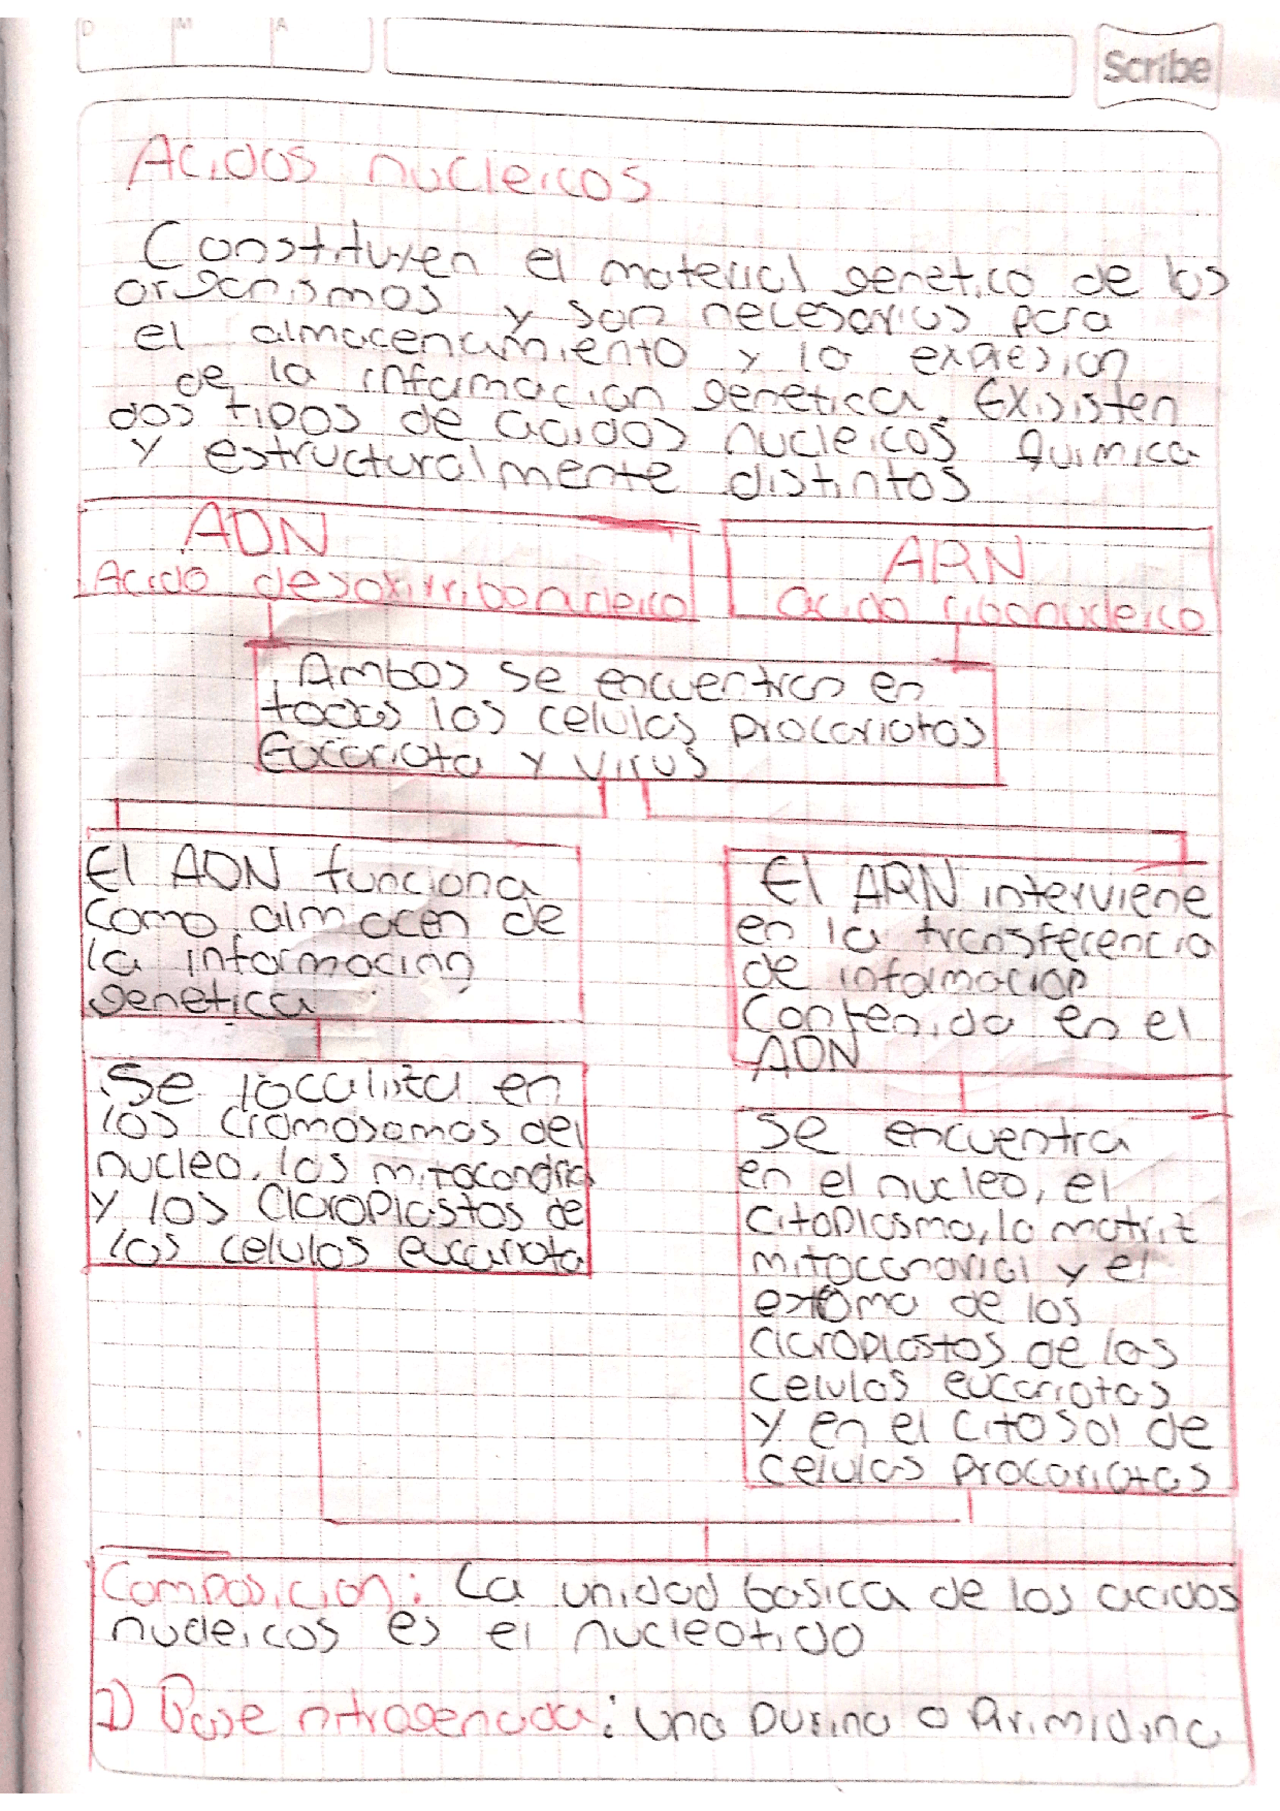 D M A
Scribe
Acidos nucleicos
Constituyen el material genetico de los
organismos y son necesarios para
el almacenamiento y la expresion
de la informacion genetica. Exisisten
dos tipos de acidos nucleicos Quimica
y estructuralmente distintos
ADN
Acido desoxirribonucleico
ARN
acido ribonucleico
Ambos se encuentran en
todas las celulas procariotas
Eucariota y virus
El ADN funciona
como almacen de
la informacion
genetica
El ARN interviene
en la transferencia
de informacion
Contenida en el
ADN
Se localiza en
los cromosomas del
nucleo, las mitocondria
y los cloroplastos de
las celulas eucariota
Se encuentra
en el nucleo, el
citoplasma, la matriz
mitocondrial y el
de los
cloroplastos de las
celulas eucariotas
y en el citosol de
celulas procariotas
Composicion: La unidad basica de los acidos
nucleicos es el nucleotido
1) Base nitrogenada: una purina o Pirimidina